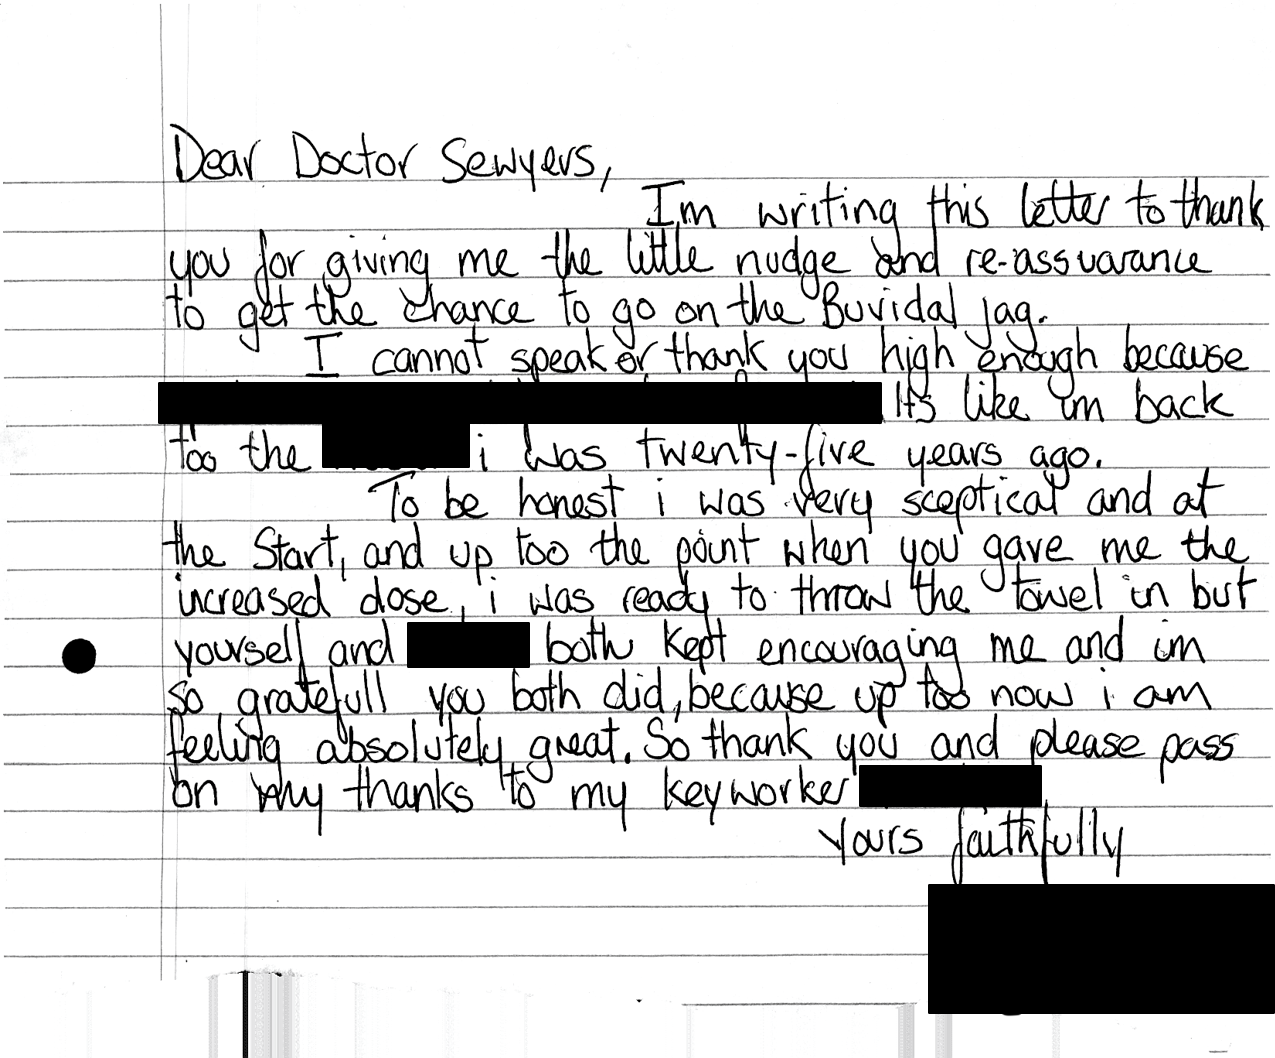 Dear Doctor Sewyers,
Im writing this letter to thank
you for giving me the little nudge and re-assuarance
to get the chance to go on the Buvidal jag.
I cannot speak or thank you high enough because
Its like im back
too the i was twenty-five years ago.
To be honest i was very sceptical and at
the Start, and up too the point when you gave me the
increased dose, i was ready to throw the towel in but
yourself and both kept encouraging me and im
so gratefull you both did, because up too now i am
feeling absolutely great. So thank you and please pass
on my thanks to my keyworker
yours faithfully